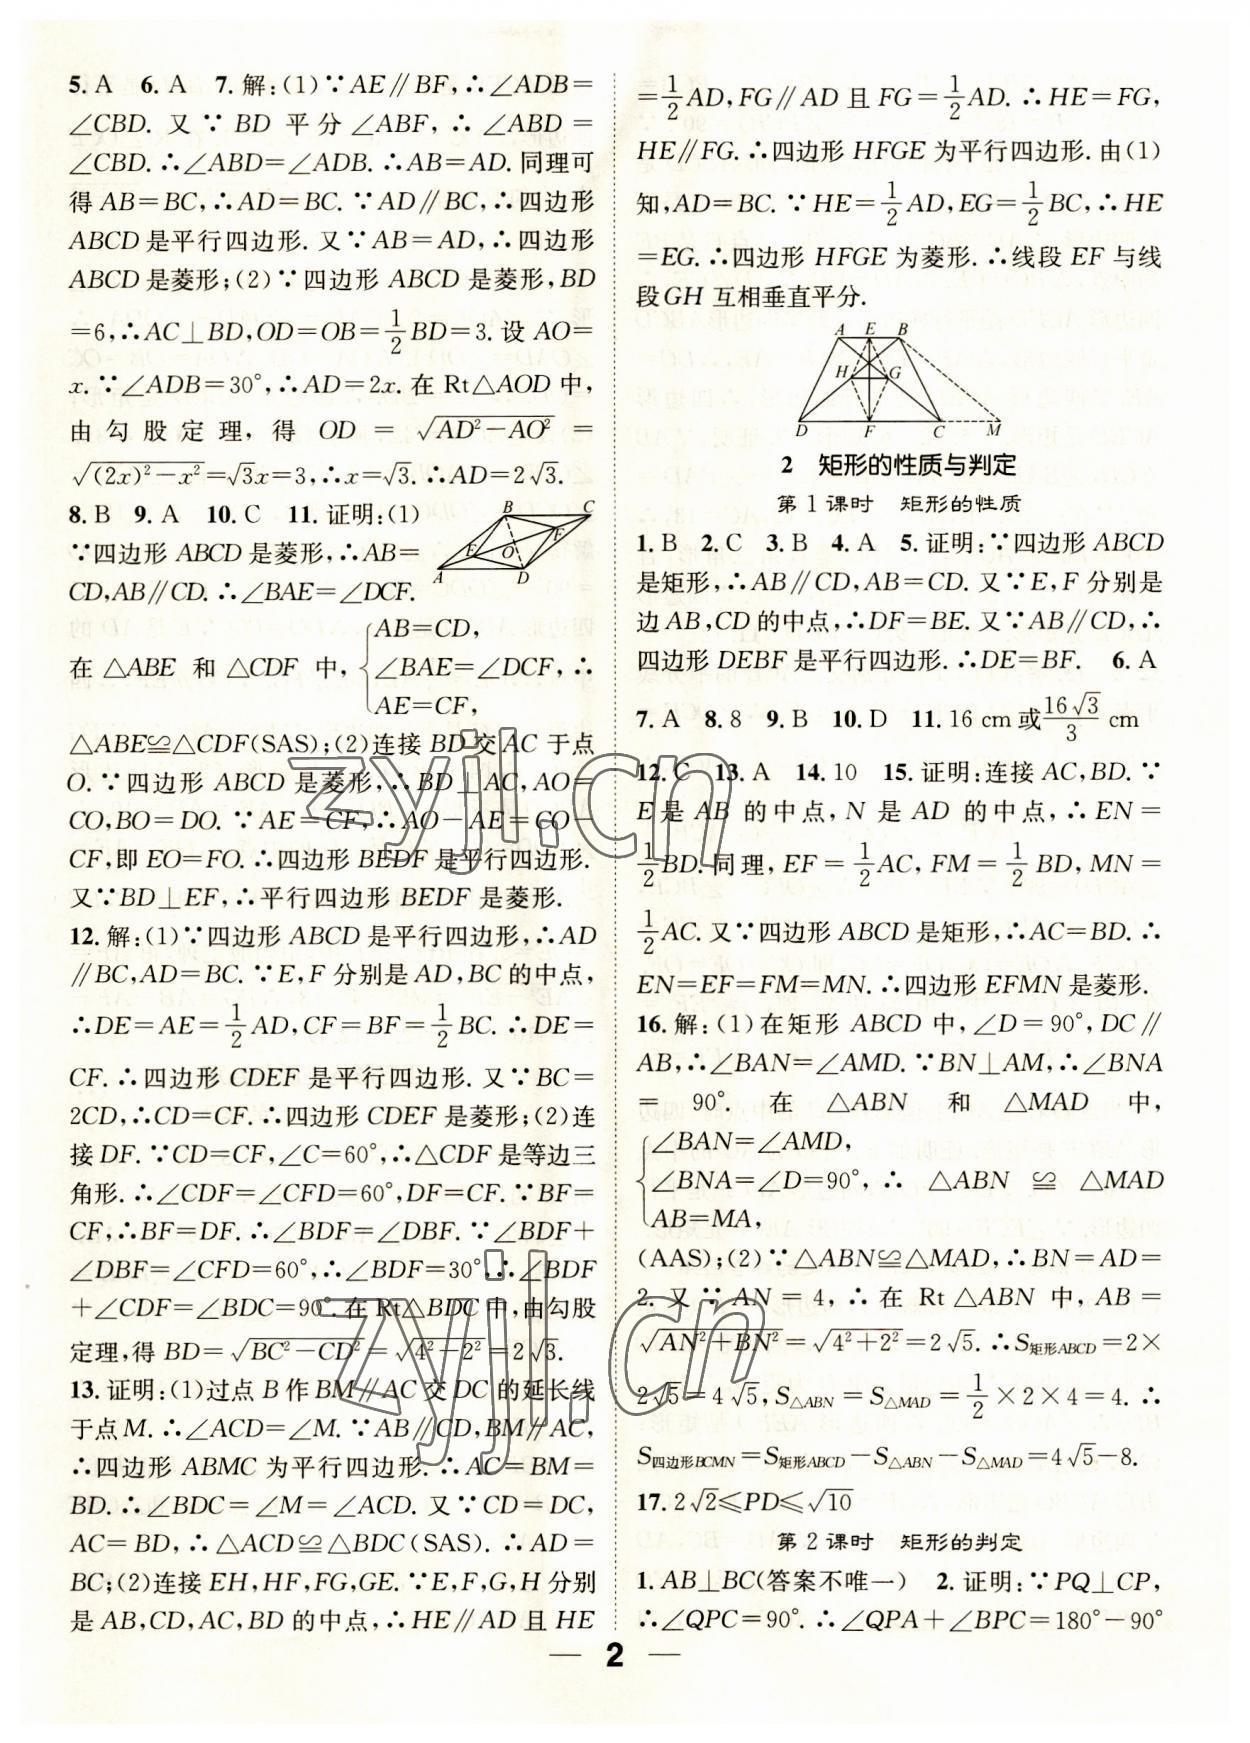 5. A 6. A 7. 解:(1)∵AE∥BF,∴∠ADB=
∠CBD. 又∵BD 平分∠ABF,∴∠ABD=
∠CBD.∴∠ABD=∠ADB.∴AB=AD.同理可
得 AB=BC,∴AD=BC.∵AD∥BC,∴四边形
ABCD 是平行四边形.又∵AB=AD,∴四边形
ABCD 是菱形;(2)∵四边形 ABCD 是菱形,BD
=6,∴AC⊥BD,OD=OB=1/2BD=3.设 AO=
x.∵∠ADB=30°,∴AD=2x.在 Rt△AOD 中,
由勾股定理,得 OD=√(AD²-AO²)=
√((2x)²-x²)=√3x=3,∴x=√3.∴AD=2√3.
8. B 9. A 10. C 11. 证明:(1)
∵四边形 ABCD 是菱形,∴AB=
CD,AB∥CD.∴∠BAE=∠DCF.
B C F E O A D
在△ABE 和△CDF 中,{AB=CD,
∠BAE=∠DCF,∴
AE=CF,
△ABE≌△CDF(SAS);(2)连接 BD 交 AC 于点
O.∵四边形 ABCD 是菱形,∴BD⊥AC,AO=
CO,BO=DO.∵AE=CF,∴AO-AE=CO-
CF,即 EO=FO.∴四边形 BEDF 是平行四边形.
又∵BD⊥EF,∴平行四边形 BEDF 是菱形.
12. 解:(1)∵四边形 ABCD 是平行四边形,∴AD
∥BC,AD=BC.∵E,F 分别是 AD,BC 的中点,
∴DE=AE=1/2AD,CF=BF=1/2BC.∴DE=
CF.∴四边形 CDEF 是平行四边形.又∵BC=
2CD,∴CD=CF.∴四边形 CDEF 是菱形;(2)连
接 DF.∵CD=CF,∠C=60°,∴△CDF 是等边三
角形.∴∠CDF=∠CFD=60°,DF=CF.∵BF=
CF,∴BF=DF.∴∠BDF=∠DBF.∵∠BDF+
∠DBF=∠CFD=60°,∴∠BDF=30°.∴∠BDF
+∠CDF=∠BDC=90°.在 Rt△BDC 中,由勾股
定理,得 BD=√(BC²-CD²)=√(4²-2²)=2√3.
13. 证明:(1)过点 B 作 BM∥AC 交 DC 的延长线
于点 M.∴∠ACD=∠M.∵AB∥CD,BM∥AC,
∴四边形 ABMC 为平行四边形.∴AC=BM=
BD.∴∠BDC=∠M=∠ACD.又∵CD=DC,
AC=BD,∴△ACD≌△BDC(SAS).∴AD=
BC;(2)连接 EH,HF,FG,GE.∵E,F,G,H 分别
是 AB,CD,AC,BD 的中点,∴HE∥AD 且 HE
=1/2AD,FG∥AD 且 FG=1/2AD.∴HE=FG,
HE∥FG.∴四边形 HFGE 为平行四边形.由(1)
知,AD=BC.∵HE=1/2AD,EG=1/2BC,∴HE
=EG.∴四边形 HFGE 为菱形.∴线段 EF 与线
段 GH 互相垂直平分.
A E B
H G
D F C M
2 矩形的性质与判定
第 1 课时 矩形的性质
1. B 2. C 3. B 4. A 5. 证明:∵四边形 ABCD
是矩形,∴AB∥CD,AB=CD.又∵E,F 分别是
边 AB,CD 的中点,∴DF=BE.又∵AB∥CD,∴
四边形 DEBF 是平行四边形.∴DE=BF. 6. A
7. A 8. 8 9. B 10. D 11. 16 cm 或 16√3/3 cm
12. C 13. A 14. 10 15. 证明:连接 AC,BD.∵
E 是 AB 的中点,N 是 AD 的中点,∴EN=
1/2BD.同理,EF=1/2AC,FM=1/2BD,MN=
1/2AC.又∵四边形 ABCD 是矩形,∴AC=BD.∴
EN=EF=FM=MN.∴四边形 EFMN 是菱形.
16. 解:(1)在矩形 ABCD 中,∠D=90°,DC∥
AB,∴∠BAN=∠AMD.∵BN⊥AM,∴∠BNA
=90°.在△ABN 和△MAD 中,
{∠BAN=∠AMD,
∠BNA=∠D=90°,∴△ABN≌△MAD
AB=MA,
(AAS);(2)∵△ABN≌△MAD,∴BN=AD=
2.又∵AN=4,∴在 Rt△ABN 中,AB=
√(AN²+BN²)=√(4²+2²)=2√5.∴S矩形ABCD=2×
2√5=4√5,S△ABN=S△MAD=1/2×2×4=4.∴
S四边形BCMN=S矩形ABCD-S△ABN-S△MAD=4√5-8.
17. 2√2≤PD≤√10
第 2 课时 矩形的判定
1. AB⊥BC(答案不唯一) 2. 证明:∵PQ⊥CP,
∴∠QPC=90°.∴∠QPA+∠BPC=180°-90°
2
zyjl.cn
zyjl.cn